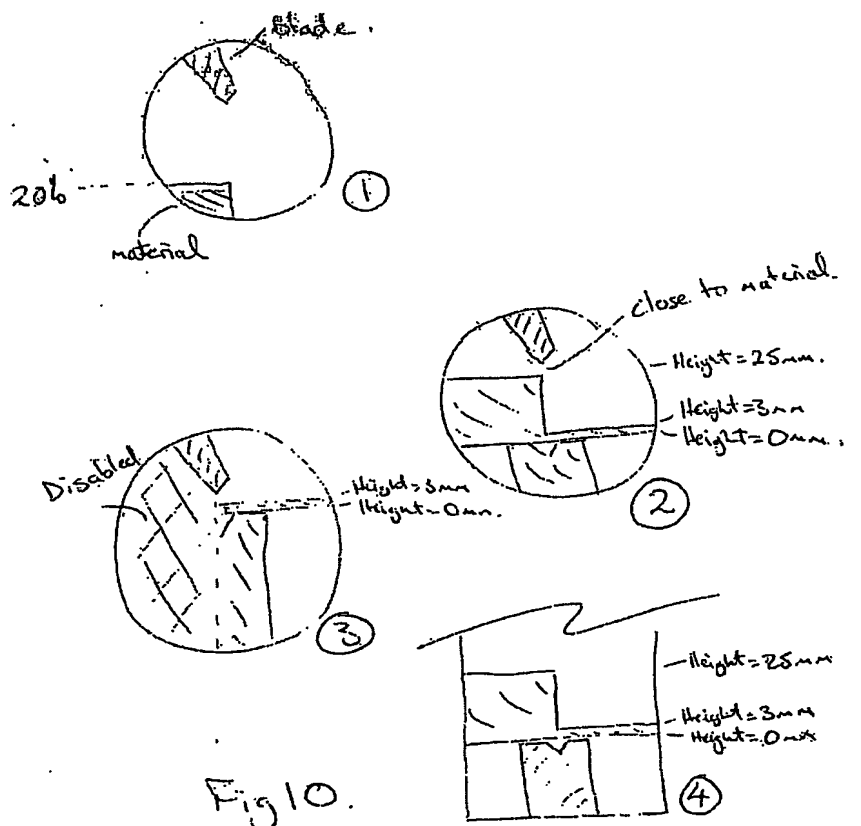 Blade.
20%
material
1
close to material.
Height = 25mm.
Height = 3mm
Height = 0mm.
2
Disabled
Height = 3mm
Height = 0mm.
3
Height = 25mm
Height = 3mm
Height = 0mm
4
Fig 10.